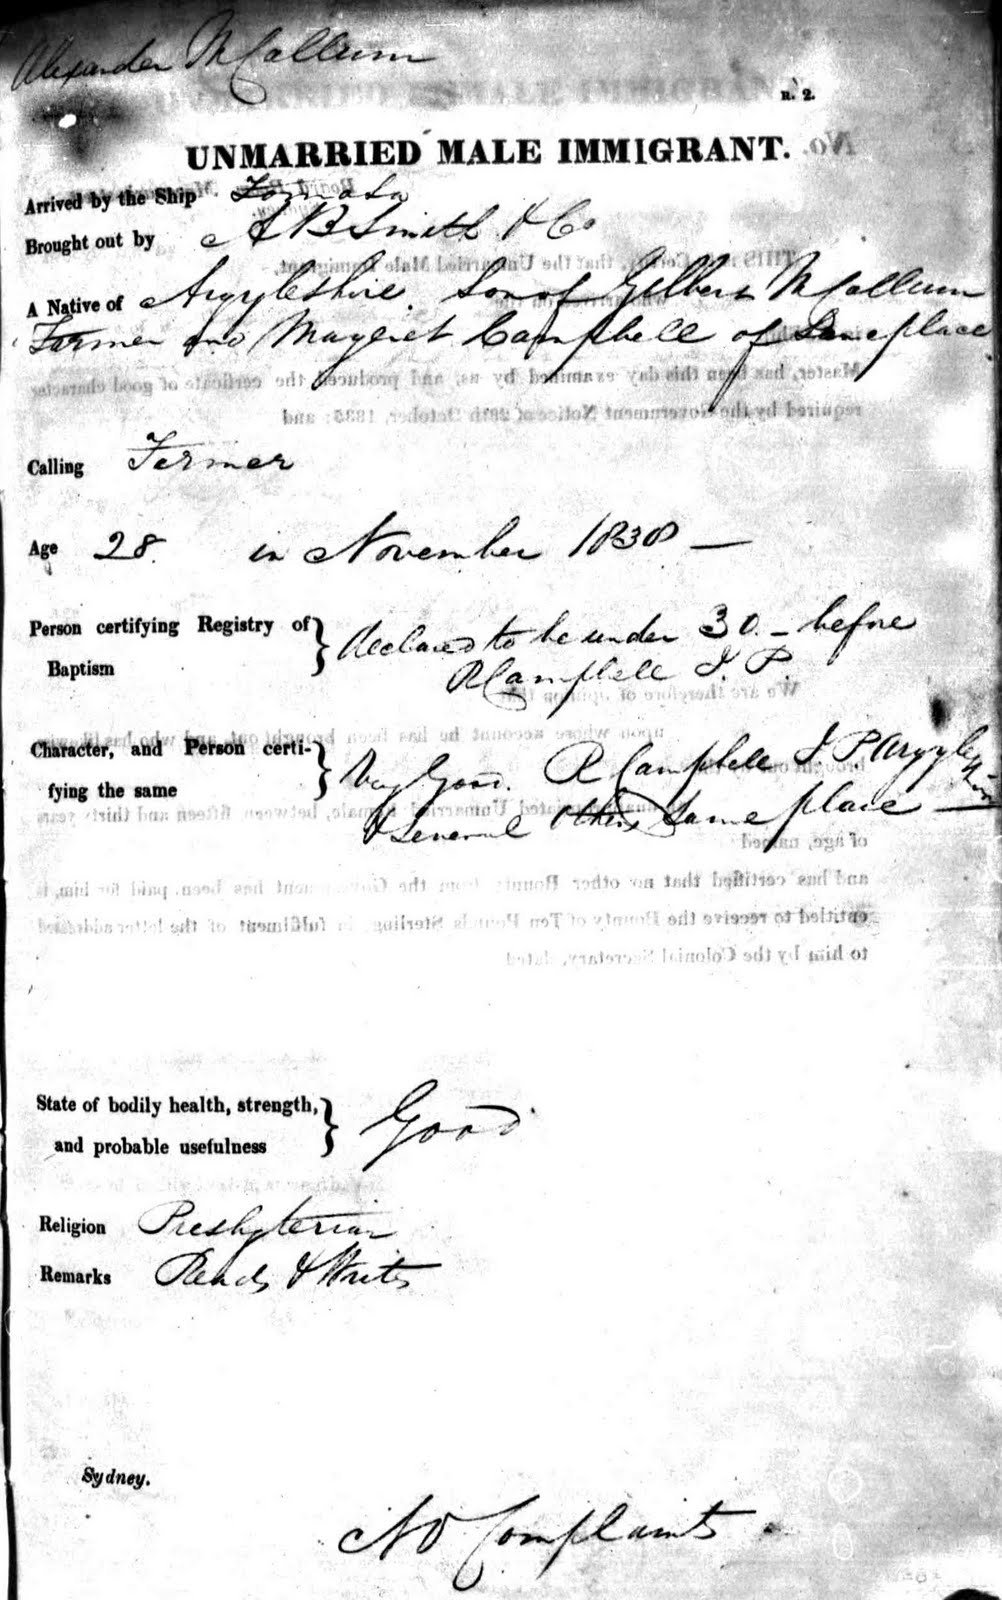 Alexander McCallum
R. 2.
UNMARRIED MALE IMMIGRANT.
Arrived by the Ship Formosa
Brought out by A B Smith & Co
A Native of Argyleshire. Son of Gilbert McCallum
Farmer and Margret Campbell of Same place
Calling Farmer
Age 28. in November 1838 —
Person certifying Registry of Baptism } declared to be under 30 – before
R Campbell J. P.
Character, and Person certifying the same } Very Good. R Campbell J P Argyle
& Several Others Same place
State of bodily health, strength, and probable usefulness } Good
Religion Presbyterian
Remarks Reads & Writes
Sydney.
No Complaints